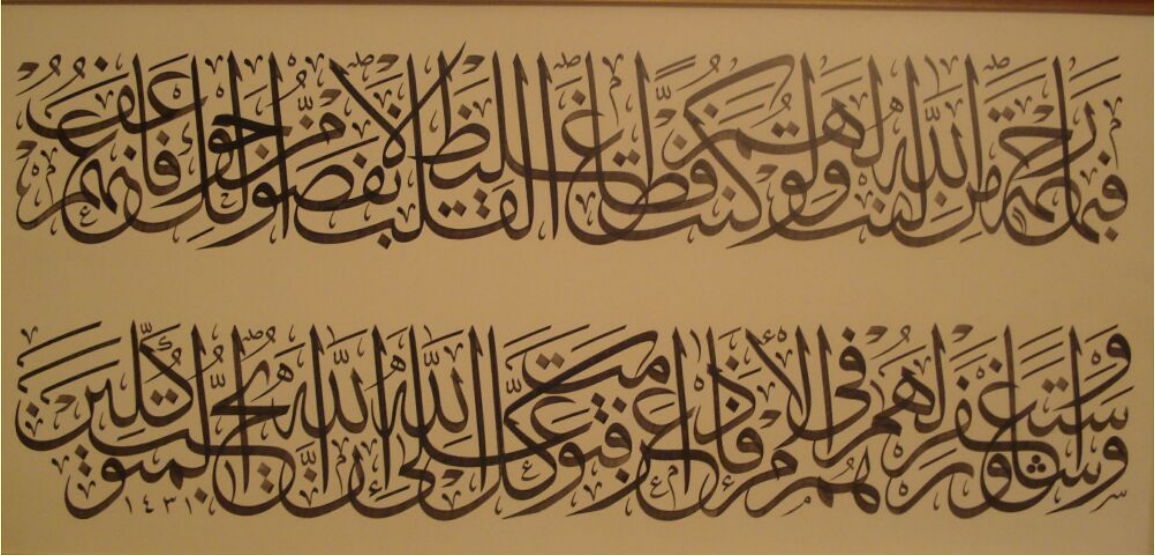 فبما رحمة من الله لنت لهم ولو كنت فظا غليظ القلب لانفضوا من حولك فاعف عنهم
واستغفر لهم وشاورهم في الأمر فإذا عزمت فتوكل على الله إن الله يحب المتوكلين ١٤٣١